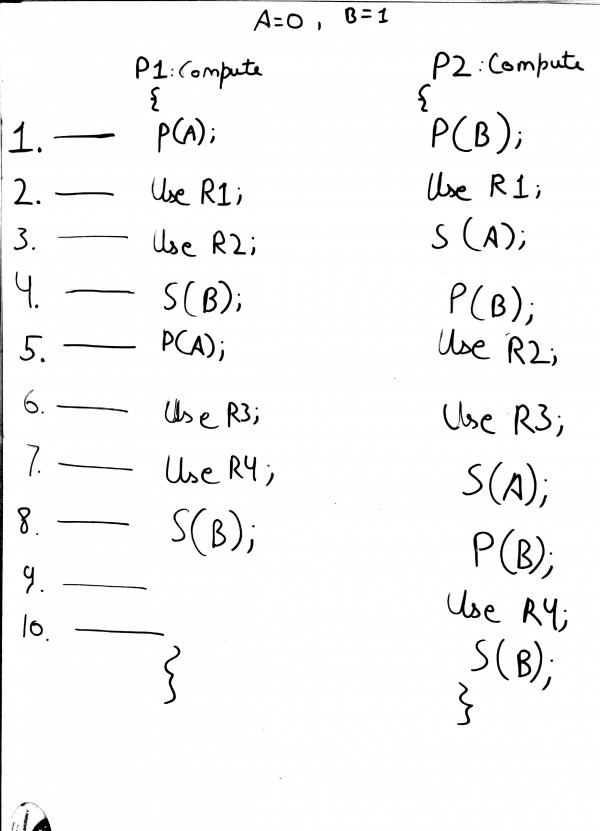 A=0 , B=1
P1:Compute P2:Compute
{ {
1. P(A); P(B);
2. Use R1; Use R1;
3. Use R2; S(A);
4. S(B); P(B);
5. P(A); Use R2;
6. Use R3; Use R3;
7. Use R4; S(A);
8. S(B); P(B);
9. Use R4;
10. S(B);
} }